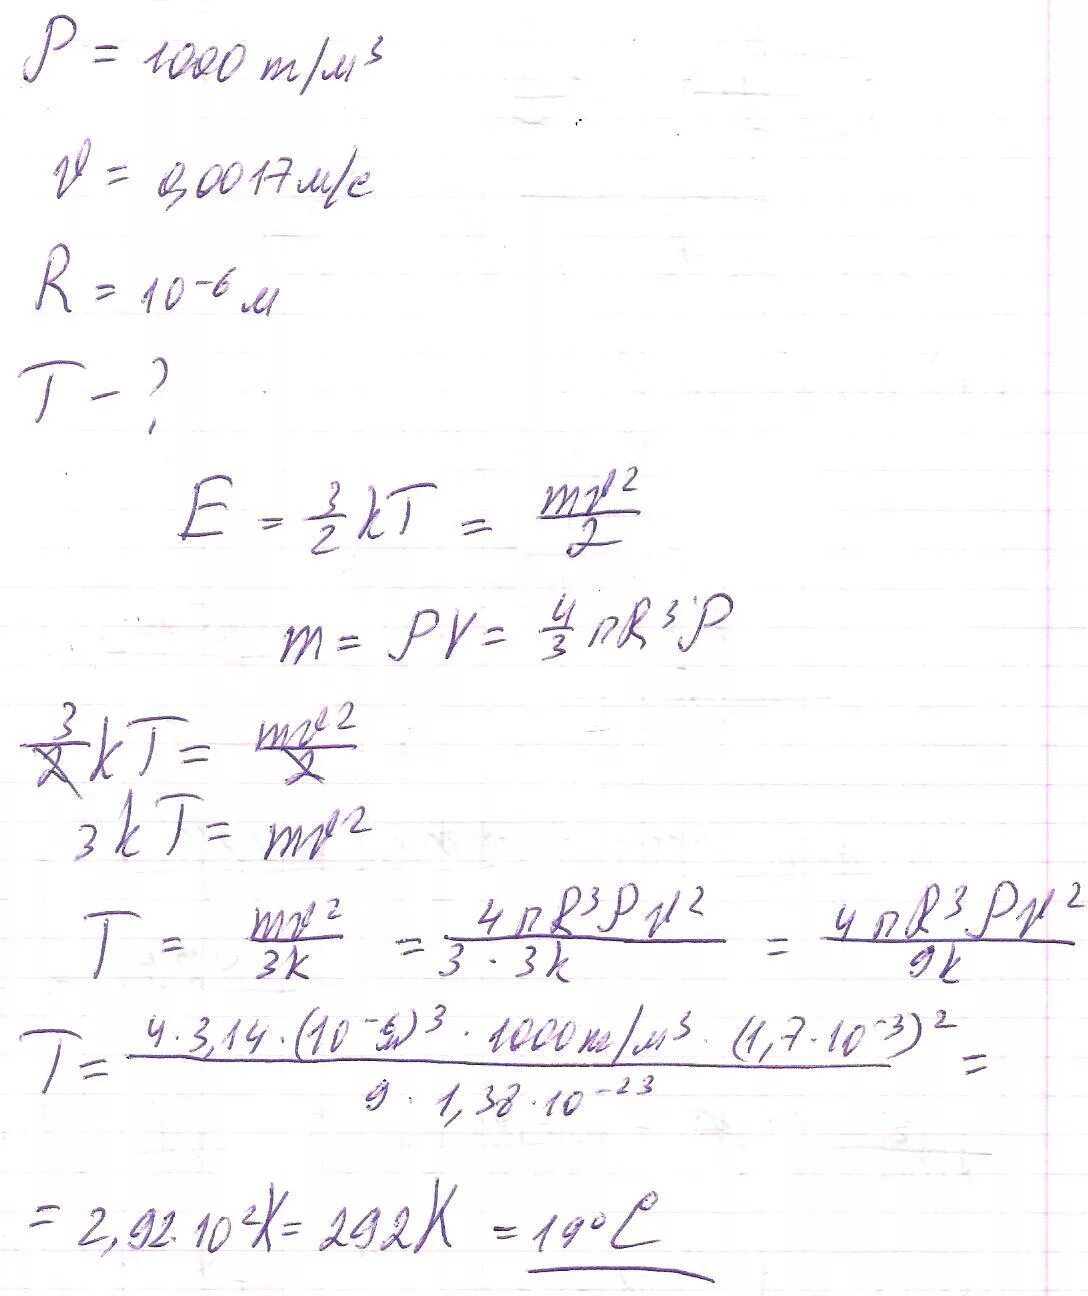 ρ = 1000 т/м³
v = 0,0017 м/с
R = 10⁻⁶ м
T - ?
E = 3/2 kT = mv²/2
m = ρV = 4/3 πR³ρ
3/2 kT = mv²/2
3kT = mv²
T = mv²/3k = 4πR³ρv²/3·3k = 4πR³ρv²/9k
T = 4·3,14·(10⁻⁶)³·1000 т/м³·(1,7·10⁻³)²/9·1,38·10⁻²³ =
= 2,92·10² K = 292 K = 19°C